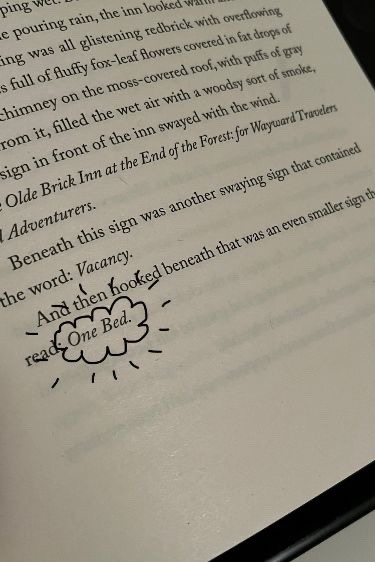 ping wet.
e pouring rain, the inn looked warm
ing was all glistening redbrick with overflowing
s full of fluffy fox-leaf flowers covered in fat drops of
chimney on the moss-covered roof, with puffs of gray
rom it, filled the wet air with a woodsy sort of smoke,
sign in front of the inn swayed with the wind.
e Olde Brick Inn at the End of the Forest: for Wayward Travelers
d Adventurers.
Beneath this sign was another swaying sign that contained
the word: Vacancy.
And then hooked beneath that was an even smaller sign th
read: One Bed.